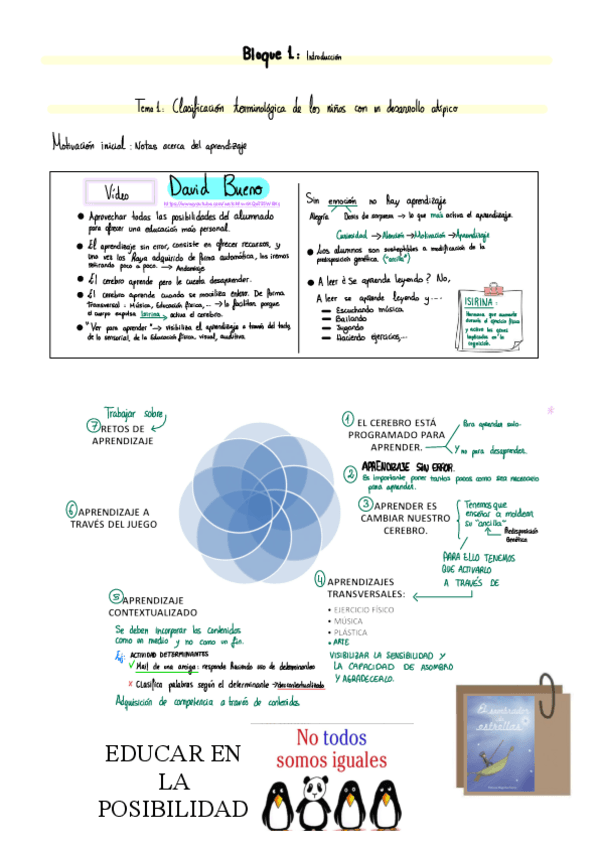 Bloque 1: Introducción
Tema 1: Clasificación terminológica de los niños con un desarrollo atípico
Motivación inicial: Notas acerca del aprendizaje
Vídeo
David Bueno
● Aprovechar todas las posibilidades del alumnado
para ofrecer una educación más personal.
● El aprendizaje sin error, consiste en ofrecer recursos, y
una vez los haya adquirido de forma automática, los iremos
retirando poco a poco. → Andamiaje
● El cerebro aprende pero le cuesta desaprender.
● El cerebro aprende cuando se moviliza entero. De forma
transversal: Música, Educación física,... → lo facilitan porque
el cuerpo expulsa Isirina → activa el cerebro.
● "Ver para aprender" → visibiliza el aprendizaje a través del tacto,
de lo sensorial, de la Educación física, visual, auditiva.
Sin emoción no hay aprendizaje
Alegría Dosis de sorpresa → lo que más activa el aprendizaje.
Curiosidad → Atención → Motivación → Aprendizaje
● Los alumnos son susceptibles a modificación de la
predisposición genética. ("arcilla")
● A leer ¿Se aprende leyendo? No,
A leer se aprende leyendo y....
— Escuchando música
— Bailando
— Jugando
— Haciendo ejercicios,...
ISIRINA:
Hormona que aumenta
durante el ejercicio físico
y activa los genes
implicados en la
cognición.
Trabajar sobre
7 RETOS DE
APRENDIZAJE
6 APRENDIZAJE A
TRAVÉS DEL JUEGO
5 APRENDIZAJE
CONTEXTUALIZADO
Se deben incorporar los contenidos
como un medio y no como un fin.
Ej: ACTIVIDAD DETERMINANTES
✓ Mail de una amiga: responde haciendo uso de determinantes
× Clasifica palabras según el determinante → descontextualizado
Adquisición de competencia a través de contenidos
1 EL CEREBRO ESTÁ
PROGRAMADO PARA
APRENDER.
Para aprender solo.
Y no para desaprender.
2 APRENDIZAJE SIN ERROR.
Es importante poner tantas pocas como sea necesario
para aprender.
3 APRENDER ES
CAMBIAR NUESTRO
CEREBRO.
Tenemos que
enseñar a moldear
su "arcilla"
Predisposición
Genética
PARA ELLO TENEMOS
QUE ACTIVARLO
A TRAVÉS DE
4 APRENDIZAJES
TRANSVERSALES:
• EJERCICIO FÍSICO
• MÚSICA
• PLÁSTICA
• ARTE
VISIBILIZAR LA SENSIBILIDAD Y
LA CAPACIDAD DE ASOMBRO
Y AGRADECERLO.
EDUCAR EN
LA
POSIBILIDAD
No todos
somos iguales
El sembrador
de
estrellas